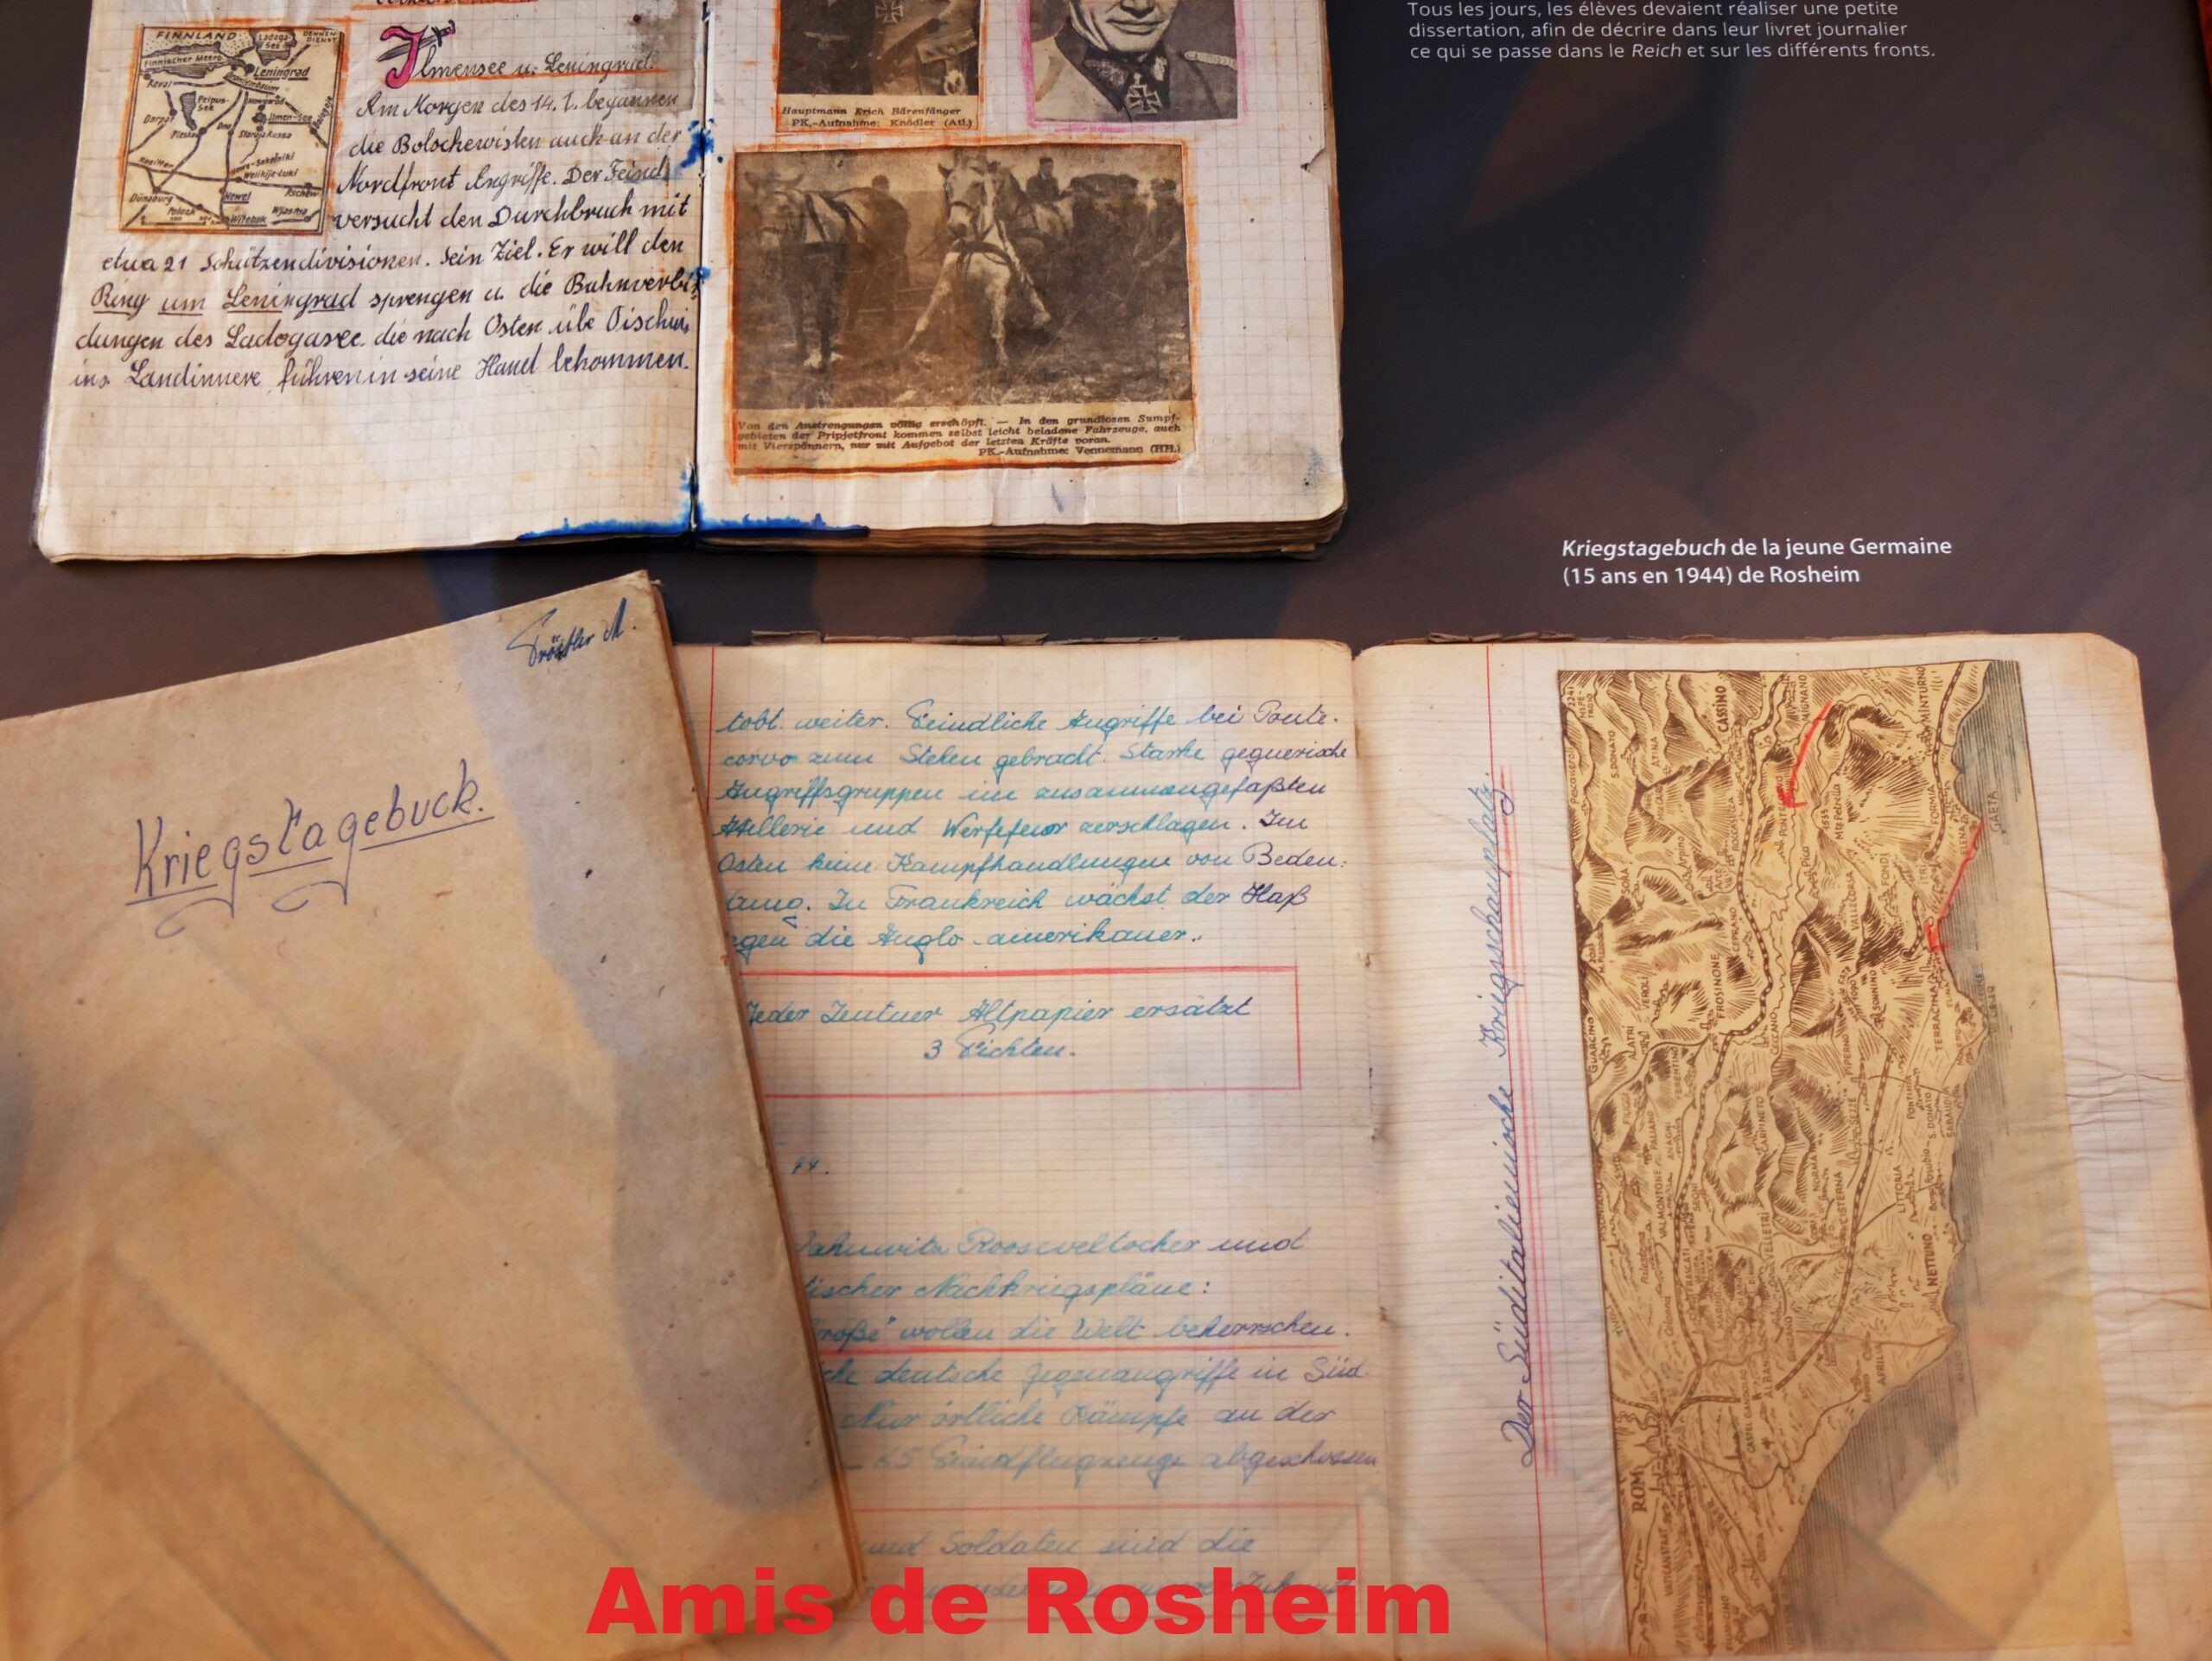 Tous les jours, les élèves devaient réaliser une petite
dissertation, afin de décrire dans leur livret journalier
ce qui se passe dans le Reich et sur les différents fronts.
FINNLAND
Ladoga-
See
Finnischer Meerb.
Leningrad
Reval
Peipus-
See
Dorpat
Pleskau
Dno
Ilmen-See
Staraja Russa
Welikije-Luki
Rositten
Dünaburg
Polozk
Newel
Witebsk
Wjasma
Ilmensee u. Leningrad.
Am Morgen des 14. 1. begannen
die Bolschewisten auch an der
Nordfront Angriffe. Der Feind
versucht den Durchbruch mit
etwa 21 Schützendivisionen. Sein Ziel. Er will den
Ring um Leningrad sprengen u. die Bahnverbin
dungen des Ladogasee. die nach Osten übe
ins Landinnere führen in seine Hand bekommen.
Hauptmann Erich Bärenfänger
PK.-Aufnahme: Knödler (Atl.)
Von den Anstrengungen völlig erschöpft. — In den grundlosen Sumpf-
gebieten der Pripjetfront kommen selbst leicht beladene Fahrzeuge, auch
mit Vierspännern, nur mit Aufgebot der letzten Kräfte voran.
PK.-Aufnahme: Vennemann (HH.)
Kriegstagebuch de la jeune Germaine
(15 ans en 1944) de Rosheim
Kriegstagebuch.
tobt weiter. Feindliche Angriffe bei Ponte-
corvo zum Stehen gebracht. Starke gegnerische
Angriffsgruppen im zusammengefaßten
und Werfefeuer zerschlagen. Im
Osten keine Kampfhandlungen von Beden-
tung. In Frankreich wächst der Haß
gegen die Anglo-amerikaner.
Jeder Zentner Altpapier ersätzt
3 Fichten.
44.
Rooseveltscher und
tischer Nachkriegspläne:
große" wollen die Welt beherrschen.
che deutsche Gegenangriffe in Süd-
Nur örtliche Kämpfe an der
– 65 Feindflugzeuge abgeschossen
und Soldaten sind die
Der Süditalienische Kriegsschauplatz.
CASSINO
MIGNANO
MINTURNO
S. DONATO
ATINA
GAETA
FORMIA
ITRI
FONDI
Pico
SORA
Arpino
CEPRANO
VALLECORSA
FROSINONE
VEROLI
ALATRI
GUARCINO
CECCANO
SONNINO
TERRACINA
PIPERNO
SEZZE
FERENTINO
ANAGNI
PALIANO
CARPINETO
PONTINIA
S. DONATO
SABAUDIA
VALMONTONE
SEGNI
NORMA
CISTERNA
LITTORIA
VELLETRI
NETTUNO
FRASCATI
CASTEL GANDOLFO
ALBANO
APRILIA
ROM
TIBER
VATIKANSTADT
Amis de Rosheim